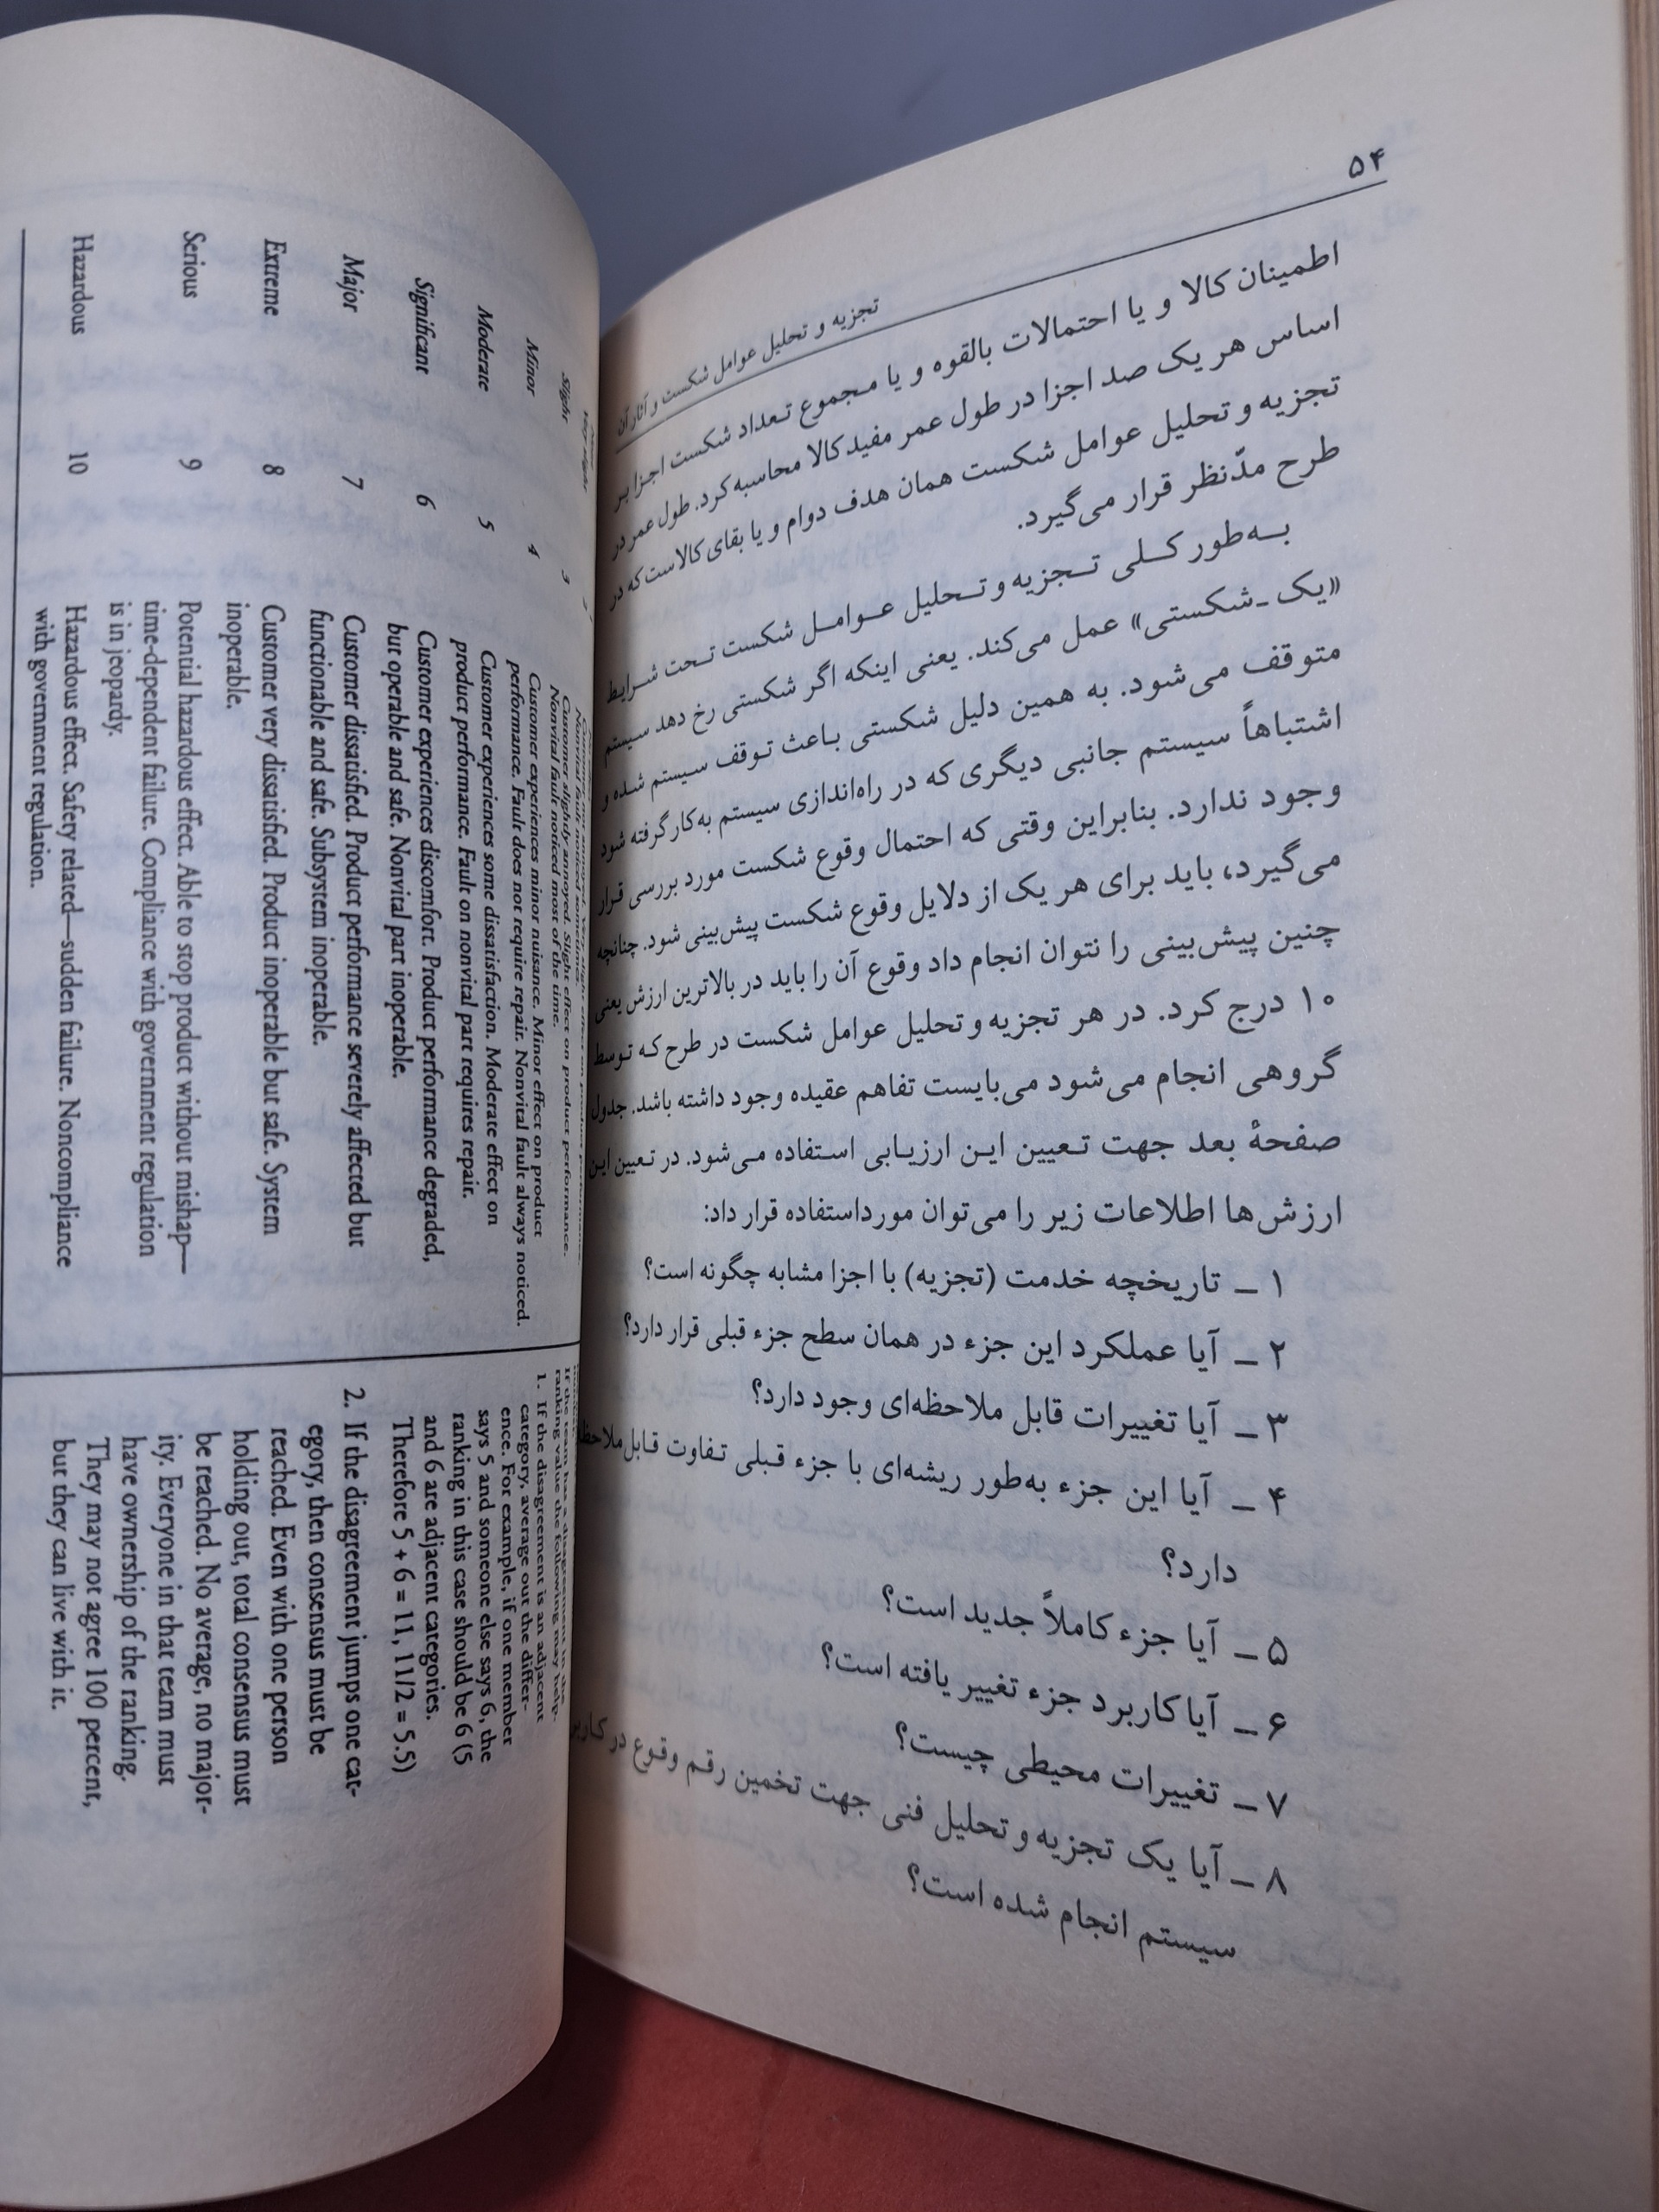 ۵۴
تجزیه و تحلیل عوامل شکست و آثار آن
اطمینان کالا و یا احتمالات بالقوه و یا مجموع تعداد شکست اجزا بر
اساس هر یک صد اجزا در طول عمر مفید کالا محاسبه کرد. طول عمر در
تجزیه و تحلیل عوامل شکست همان هدف دوام و یا بقای کالاست که در
طرح مدّنظر قرار می‌گیرد.
به‌طور کلی تجزیه و تحلیل عوامل شکست تحت شرایط
«یک ـ شکستی» عمل می‌کند. یعنی اینکه اگر شکستی رخ دهد سیستم
متوقف می‌شود. به همین دلیل شکستی باعث توقف سیستم شده و
اشتباهاً سیستم جانبی دیگری که در راه‌اندازی سیستم به‌کار گرفته شود
وجود ندارد. بنابراین وقتی که احتمال وقوع شکست مورد بررسی قرار
می‌گیرد، باید برای هر یک از دلایل وقوع شکست پیش‌بینی شود. چنانچه
چنین پیش‌بینی را نتوان انجام داد وقوع آن را باید در بالاترین ارزش یعنی
۱۰ درج کرد. در هر تجزیه و تحلیل عوامل شکست در طرح که توسط
گروهی انجام می‌شود می‌بایست تفاهم عقیده وجود داشته باشد. جدول
صفحهٔ بعد جهت تعیین این ارزیابی استفاده می‌شود. در تعیین این
ارزش‌ها اطلاعات زیر را می‌توان مورداستفاده قرار داد:
۱ ـ تاریخچه خدمت (تجزیه) با اجزا مشابه چگونه است؟
۲ ـ آیا عملکرد این جزء در همان سطح جزء قبلی قرار دارد؟
۳ ـ آیا تغییرات قابل ملاحظه‌ای وجود دارد؟
۴ ـ آیا این جزء به‌طور ریشه‌ای با جزء قبلی تفاوت قابل
دارد؟
۵ ـ آیا جزء کاملاً جدید است؟
۶ ـ آیا کاربرد جزء تغییر یافته است؟
۷ ـ تغییرات محیطی چیست؟
۸ ـ آیا یک تجزیه و تحلیل فنی جهت تخمین رقم وقوع در
سیستم انجام شده است؟
Slight 3 Customer slightly annoyed. Slight effect on product performance.
Nonvital fault noticed most of the time.
Minor 4 Customer experiences minor nuisance. Minor effect on product
performance. Fault does not require repair. Nonvital fault always noticed.
Moderate 5 Customer experiences some dissatisfaction. Moderate effect on
product performance. Fault on nonvital part requires repair.
Significant 6 Customer experiences discomfort. Product performance degraded,
but operable and safe. Nonvital part inoperable.
Major 7 Customer dissatisfied. Product performance severely affected but
functionable and safe. Subsystem inoperable.
Extreme 8 Customer very dissatisfied. Product inoperable but safe. System
inoperable.
Serious 9 Potential hazardous effect. Able to stop product without mishap—
time-dependent failure. Compliance with government regulation
is in jeopardy.
Hazardous 10 Hazardous effect. Safety related—sudden failure. Noncompliance
with government regulation.
If the team has a disagreement in the
ranking value the following may help.
1. If the disagreement is an adjacent
category, average out the differ-
ence. For example, if one member
says 5 and someone else says 6, the
ranking in this case should be 6 (5
and 6 are adjacent categories.
Therefore 5 + 6 = 11, 11/2 = 5.5)
2. If the disagreement jumps one cat-
egory, then consensus must be
reached. Even with one person
holding out, total consensus must
be reached. No average, no major-
ity. Everyone in that team must
have ownership of the ranking.
They may not agree 100 percent,
but they can live with it.